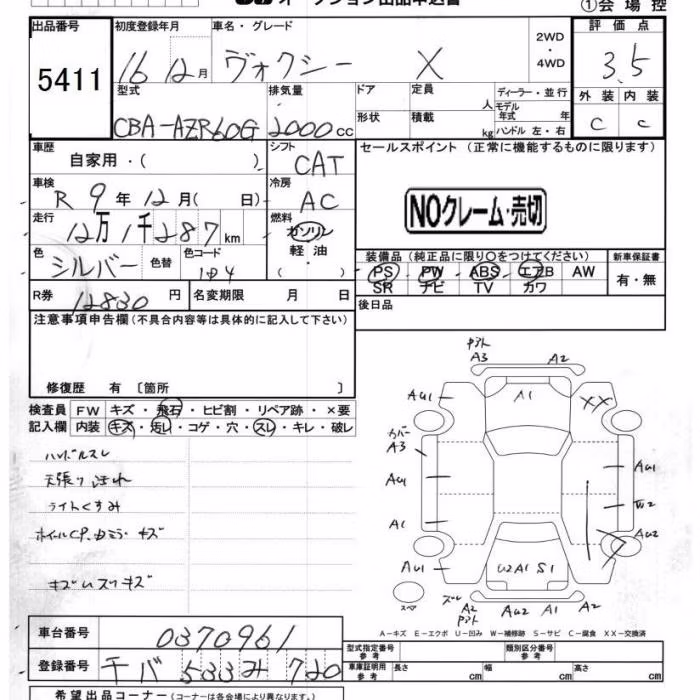 オークション出品申込書
①会場控
出品番号 初度登録年月 車名・グレード 2WD・4WD 評価点
5411 16 12月 ヴォクシー X 3.5
型式 排気量 ドア 定員 人 ディーラー・並行 外装 内装
モデル年式 年
CBA-AZR60G 2000cc 形状 積載 kg ハンドル 左・右 C C
車歴 シフト セールスポイント (正常に機能するものに限ります)
自家用・( ) CAT
車検 冷房
R 9年 12月( 日) AC NOクレーム・売切
走行 燃料
12万1千287km ガソリン
色 色替 色コード 軽油 装備品 (純正品に限り○をつけてください) 新車保証書
シルバー 1D4 ( ・ ) PS・PW・ABS・エアB AW 有・無
SR ナビ TV カワ
R券 12830円 名変期限 月 日 後日品
注意事項申告欄 (不具合内容等は具体的に記入して下さい)
修復歴 有 〔箇所 〕
検査員 FW キズ・飛石・ヒビ割・リペア跡・×要
記入欄 内装 キズ・汚レ・コゲ・穴・スレ・キレ・破レ
ハンドルスレ
天張り汚れ
ライトくすみ
キズ
A3 A2
AU1 A1 XX
カバー
A3
AU1 AU1
W2
A1 AU2
AU1 U2A1 S1
スペア A2 AU2 A1 A2
A-キズ E-エクボ U-凹み W-補修跡 S-サビ C-腐食 XX-交換済
車台番号 0370961
登録番号 千バ 533 み 720
型式指定番号 参考 類別区分番号 参考
車庫証明用 参考 長さ cm 幅 cm 高さ cm
希望出品コーナー (コーナーは各会場により異なります。)